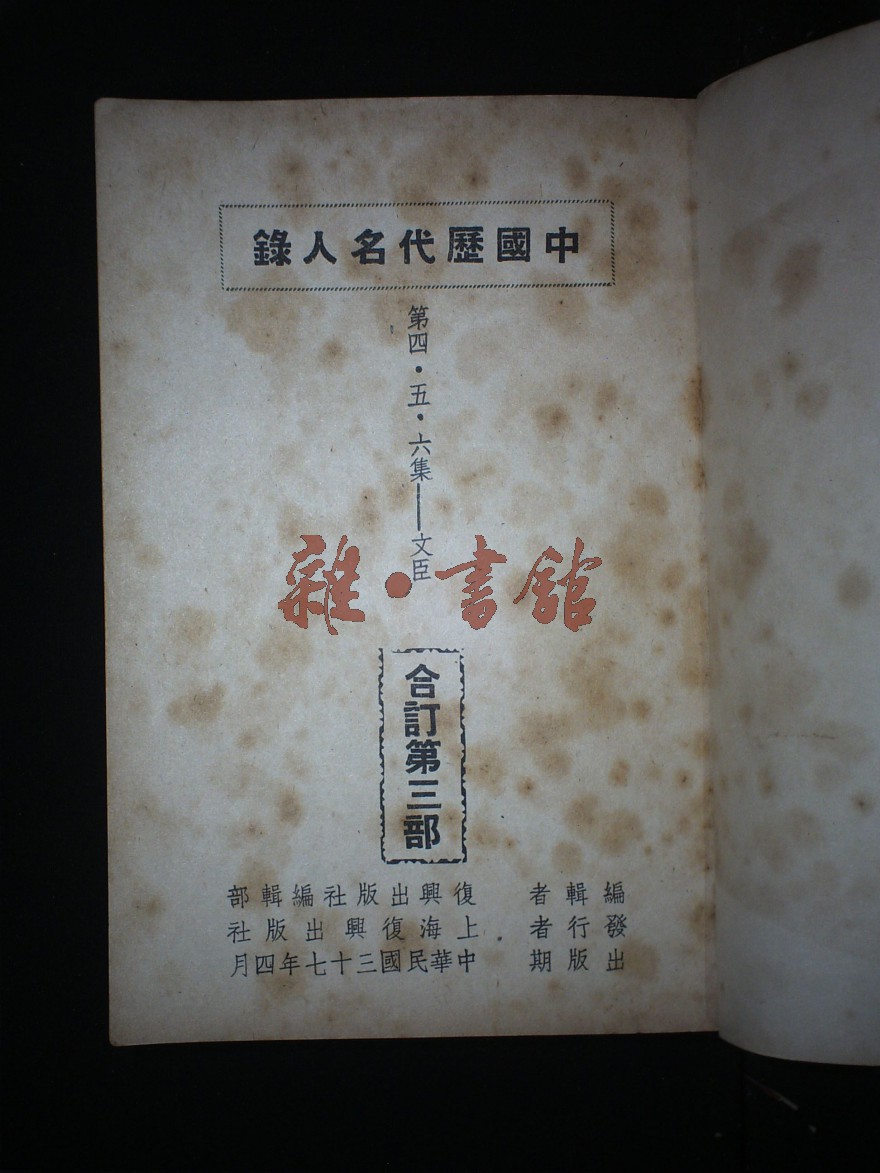 中國歷代名人錄
第四·五·六集——文臣
雜·書館
合訂第三部
編輯者 復興出版社編輯部
發行者 上海復興出版社
出版期 中華民國三十七年四月